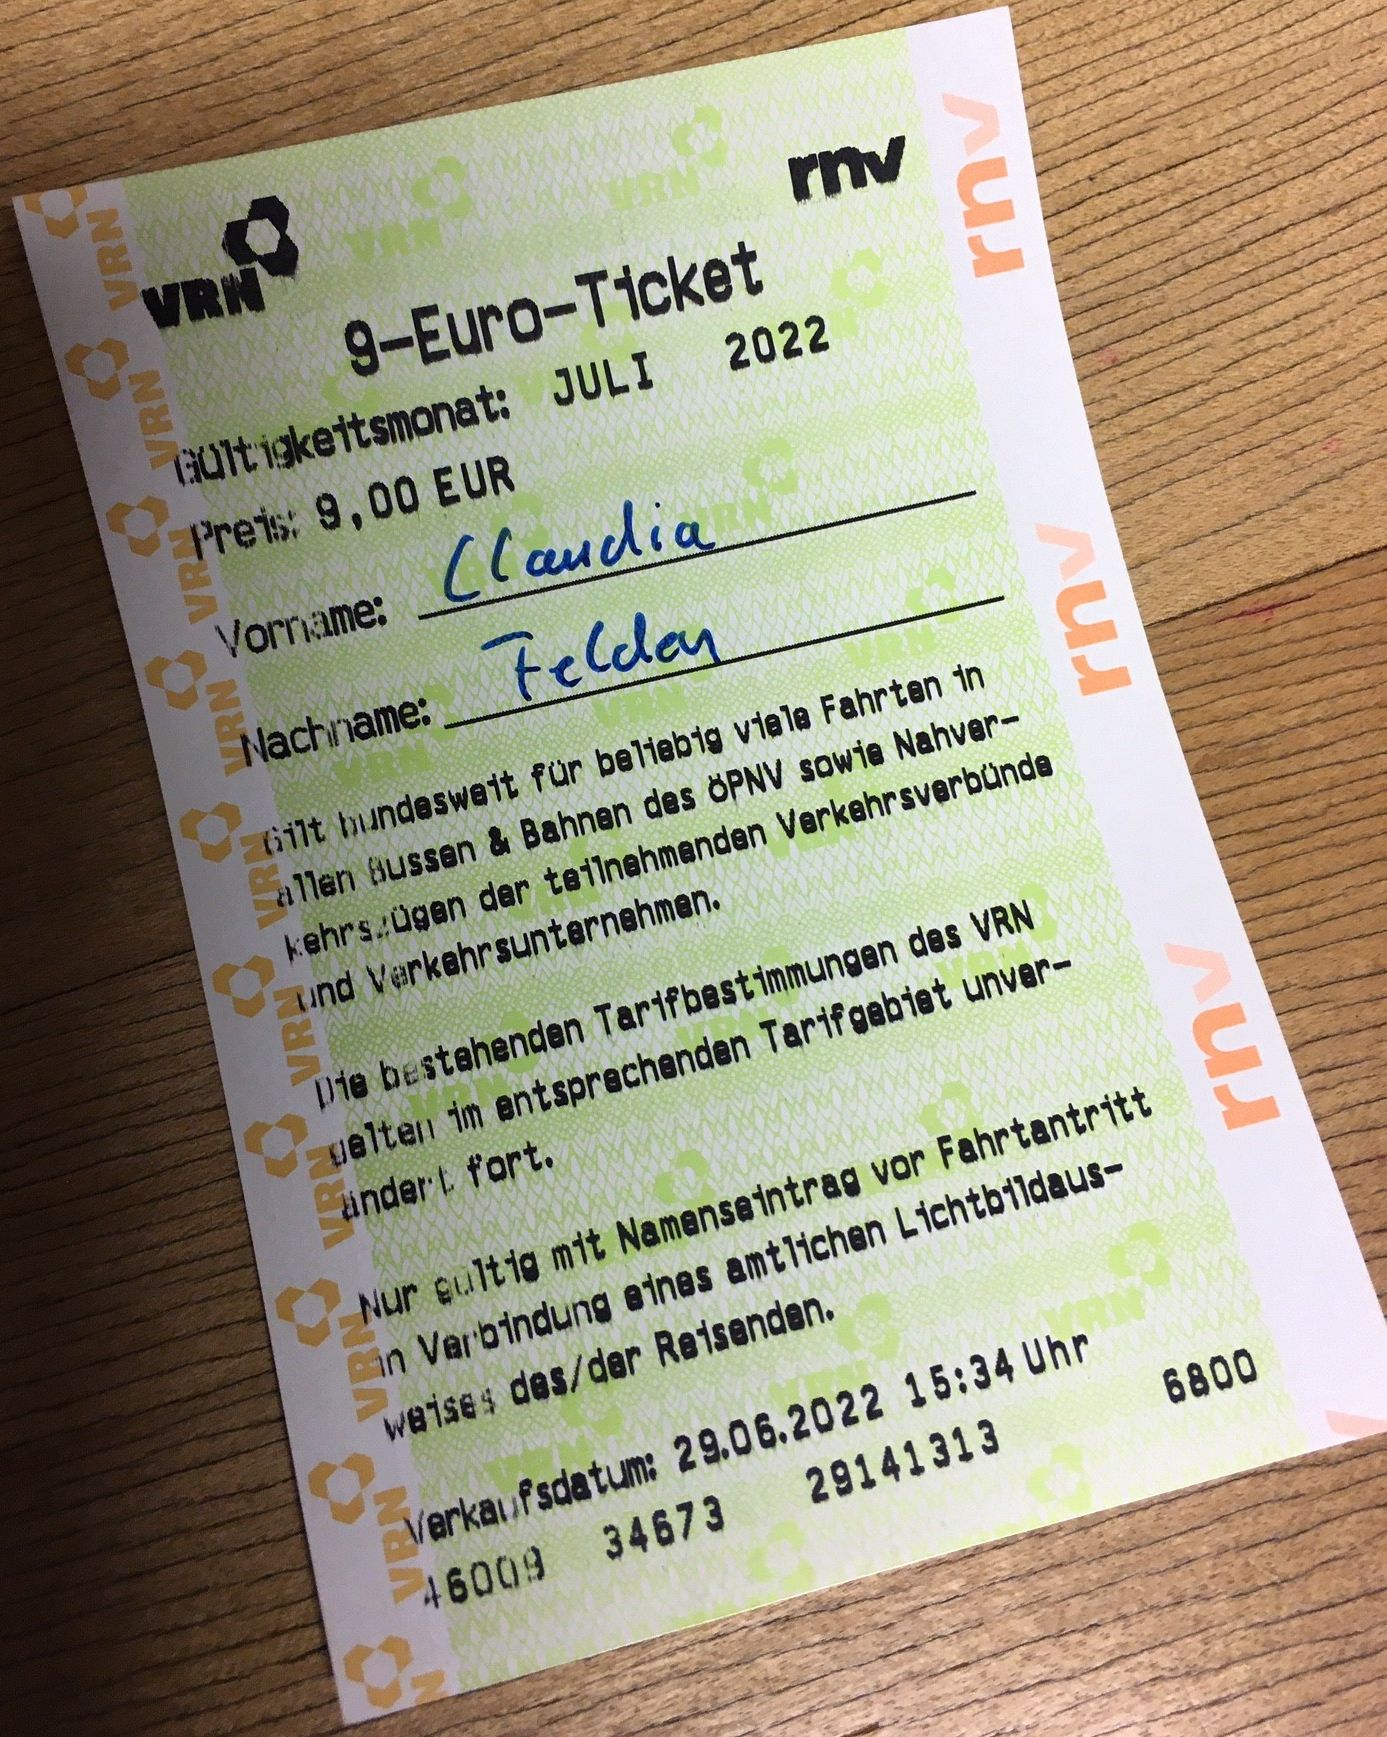 VRN
rnv
9-Euro-Ticket
Gültigkeitsmonat: JULI 2022
Preis: 9,00 EUR
Vorname: Claudia
Nachname: Felden
Gilt bundesweit für beliebig viele Fahrten in
allen Bussen & Bahnen des ÖPNV sowie Nahver-
kehrszügen der teilnehmenden Verkehrsverbünde
und Verkehrsunternehmen.
Die bestehenden Tarifbestimmungen des VRN
gelten im entsprechenden Tarifgebiet unver-
ändert fort.
Nur gültig mit Namenseintrag vor Fahrtantritt
in Verbindung eines amtlichen Lichtbildaus-
weises des/der Reisenden.
Verkaufsdatum: 29.06.2022 15:34 Uhr
46009 34673 29141313 6800
VRN
VRN
VRN
VRN
VRN
VRN
VRN
VRN
VRN
rnv
rnv
rnv